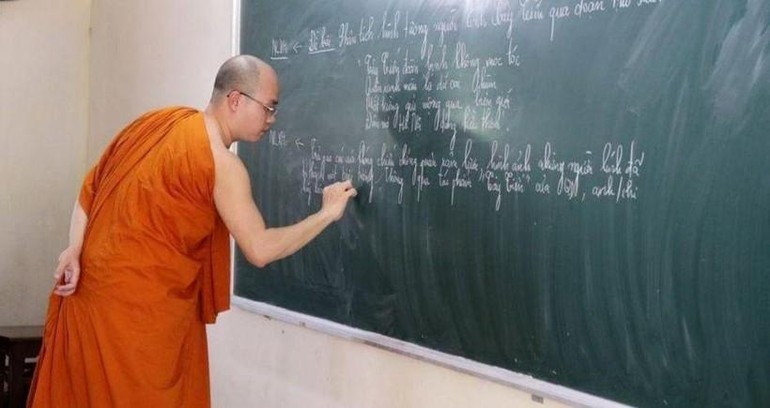 NLVH ← Đề bài: Phân tích hình tượng người lính Tây Tiến qua đoạn thơ sau
"Tây Tiến đoàn binh không mọc tóc
Quân xanh màu lá dữ oai hùm
Mắt trừng gửi mộng qua biên giới
Đêm mơ Hà Nội dáng kiều thơm"
NLXH ← Trải qua các cuộc kháng chiến chống quân xâm lược, hình ảnh những người lính đã
Thông qua tác phẩm "Tây Tiến" của QD, anh/chị